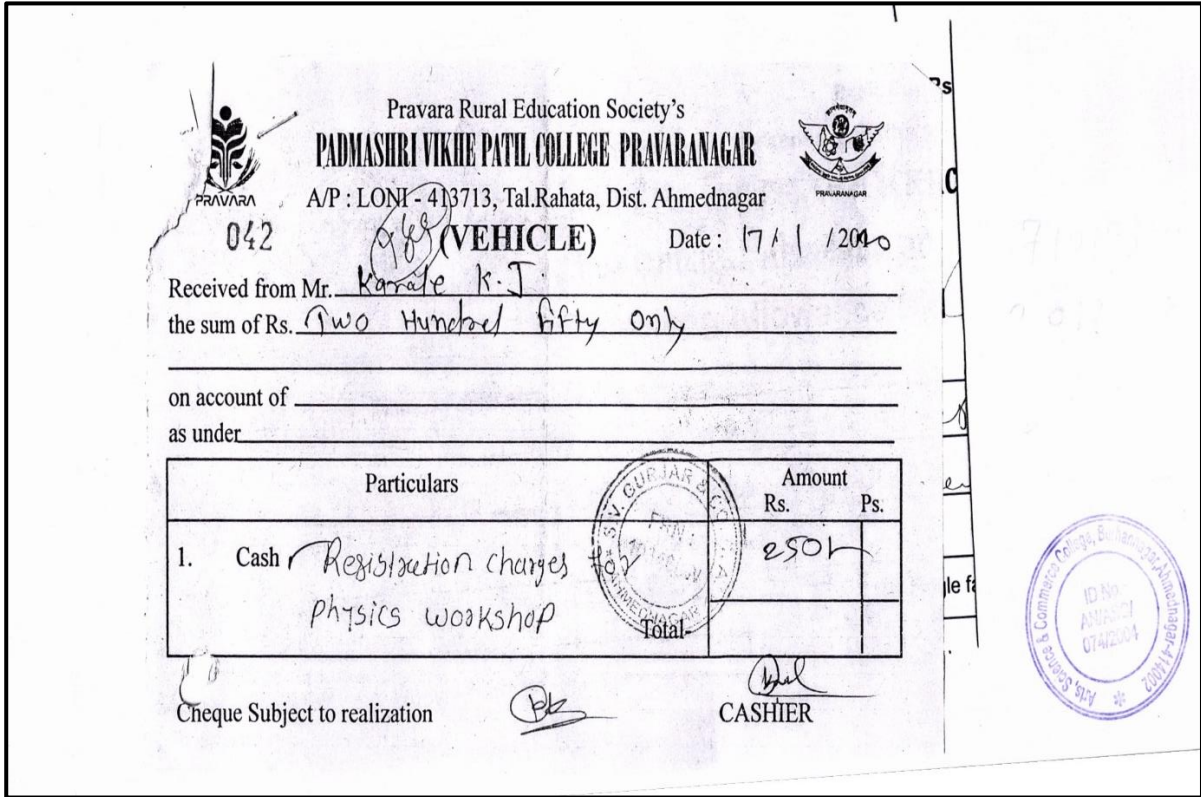 Pravara Rural Education Society's
PADMASHRI VIKHE PATIL COLLEGE PRAVARANAGAR
PRAVARA
PRAVARANAGAR
A/P : LONI - 413713, Tal.Rahata, Dist. Ahmednagar
042 (VEHICLE) Date : 17 / 1 / 2020
Received from Mr. Karale K. J.
the sum of Rs. Two Hundred Fifty Only
on account of
as under
Particulars Amount
Rs. Ps.
1. Cash Registration charges for 250/-
physics workshop
Total-
S.V. GURJAR & CO
FRN :
AHMEDNAGAR
Cheque Subject to realization CASHIER
Arts, Science & Commerce College, Burhannagar, Ahmednagar-414002
ID No.
074/2004